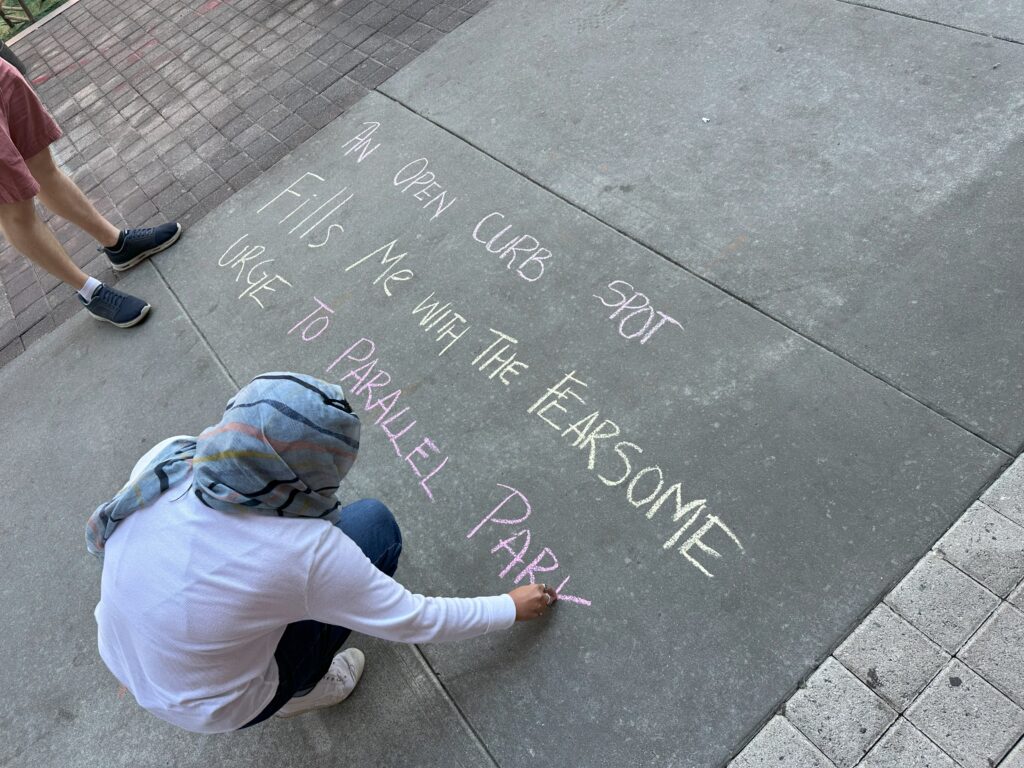 AN OPEN CURB SPOT
Fills Me WITH THE FEARSOME
URGE TO PARALLEL PARK